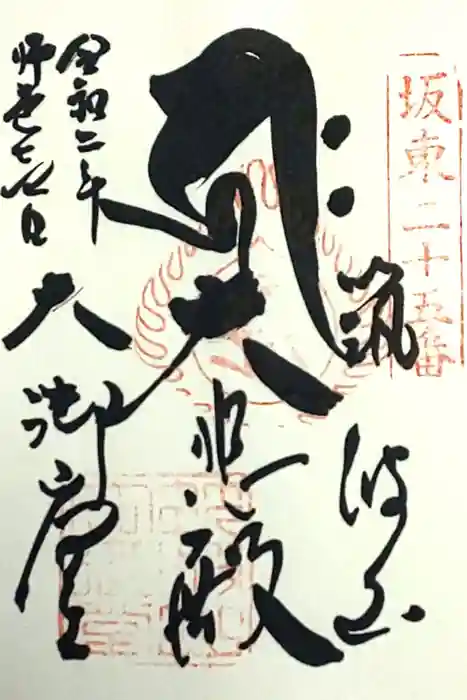 坂東二十五番
筑波山
𑖮𑖿𑖨𑖱𑖾
大悲殿
大御堂
令和二年
師走 日